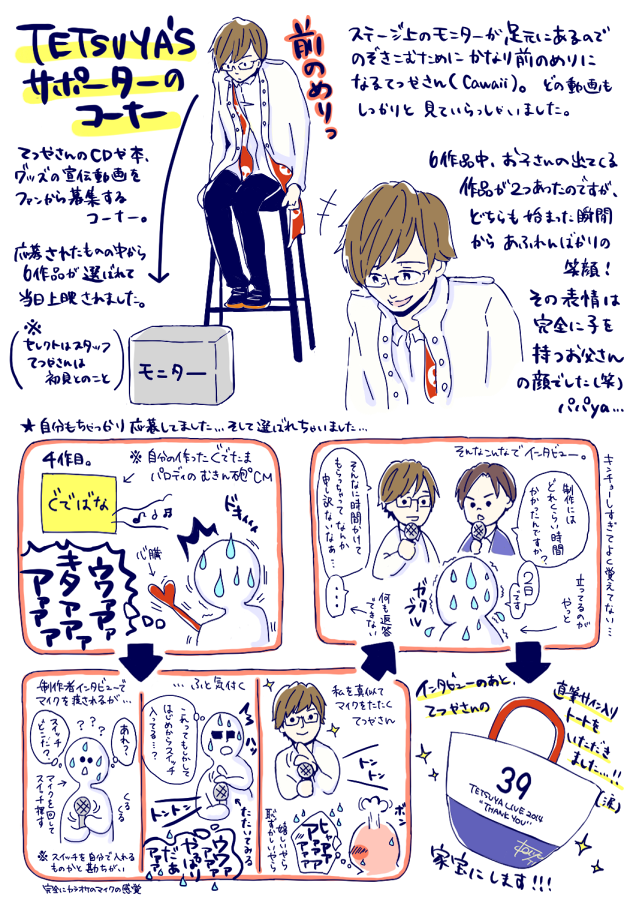 TETSUYA'S
サポーターの
コーナー
てつやさんのCDや本、
グッズの宣伝動画を
ファンから募集する
コーナー。
応募されたものの中から
6作品が選ばれて
当日上映されました。
※
セレクトはスタッフ
てつやさんは
初見とのこと
前のめりっ
モニター
ステージ上のモニターが足元にあるので
のぞきこむためにかなり前のめりに
なるてつやさん(Cawaii)。どの動画も
しっかりと見ていらっしゃいました。
6作品中、お子さんの出てくる
作品が2つあったのですが、
どちらも始まった瞬間
からあふれんばかりの
笑顔!
その表情は
完全に子を
持つお父さん
の顔でした(笑)
パパya…
★自分もちゃっかり応募してました…そして選ばれちゃいました…
4作目。
※自分の作ったぐでたま
パロディのむきん砲CM
ぐでばな
ドキィィ
心臓
ウワァァ
キタァァァ
アァァァ
制作者インタビューで
マイクを渡されるが…
あれ?
スイッチ
どこだ?
???
くるくる
マイクを回して
スイッチ探す
※スイッチを自分で入れる
ものかと勘ちがい
完全にカラオケのマイクの感覚
…ふと気付く
これってもしかして
はじめからスイッチ
入ってる…?
ハッ
トントン
たたいてみる
ウワァ
やっぱり
だぁ
アァァ
私を真似て
マイクをたたく
てつやさん
トントン
ボン
ヒャァァ
アァァァ
嬉しいやら
恥ずかしいやら
そんなこんなでインタビュー。
制作には
どれくらい時間
かかったんですか?
そんなに時間かけて
もらっちゃって、なんか
申し訳ないなぁ…
2日
です
…
何も返答
できない
ガクブル
立ってるのが
やっと
キンチョーしすぎてよく覚えてない…
インタビューのあと、
てつやさんの
直筆サイン入り
トートを
いただき
ました…!!
(涙)
39
TETSUYA LIVE 2014
"THANK YOU"
家宝にします!!!